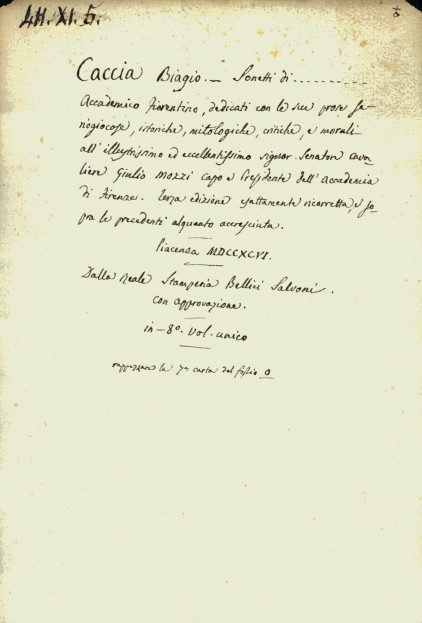 4H. XI. 5.
Caccia Biagio. — Sonetti di ..........
Accademico fiorentino, dedicati con le sue prose se-
riogiocose, istoriche, mitologiche, critiche, e morali
all'illustrissimo ed eccellentissimo signor Senatore Cava-
liere Giulio Mozzi capo e Presidente dell'Accademia
di Firenze. Terza edizione esattamente ricorretta, e so-
pra le precedenti alquanto accresciuta.
Piacenza MDCCXCVI.
Dalla Reale Stamperia Bellici Salvoni.
con approvazione.
in-8º. Vol. unico
la 7ma carta del foglio O